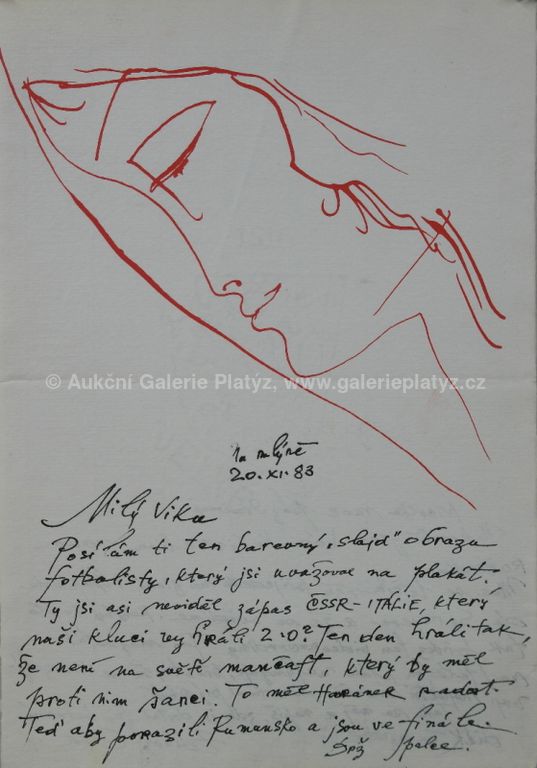 © Aukční Galerie Platýz, www.galerieplatyz.cz
na mlýně
20.XI.83
Milý Viku
Posílám ti ten barevný „slajd" obrazu
fotbalisty, který jsi uvažoval na plakát.
Ty jsi asi neviděl zápas ČSSR-ITALIE, který
naši kluci vyhráli 2:0? Ten den hráli tak,
že není na světě mančaft, který by měl
proti nim šanci. To měl Havránek radost.
Teď aby porazili Rumunsko a jsou ve finále.